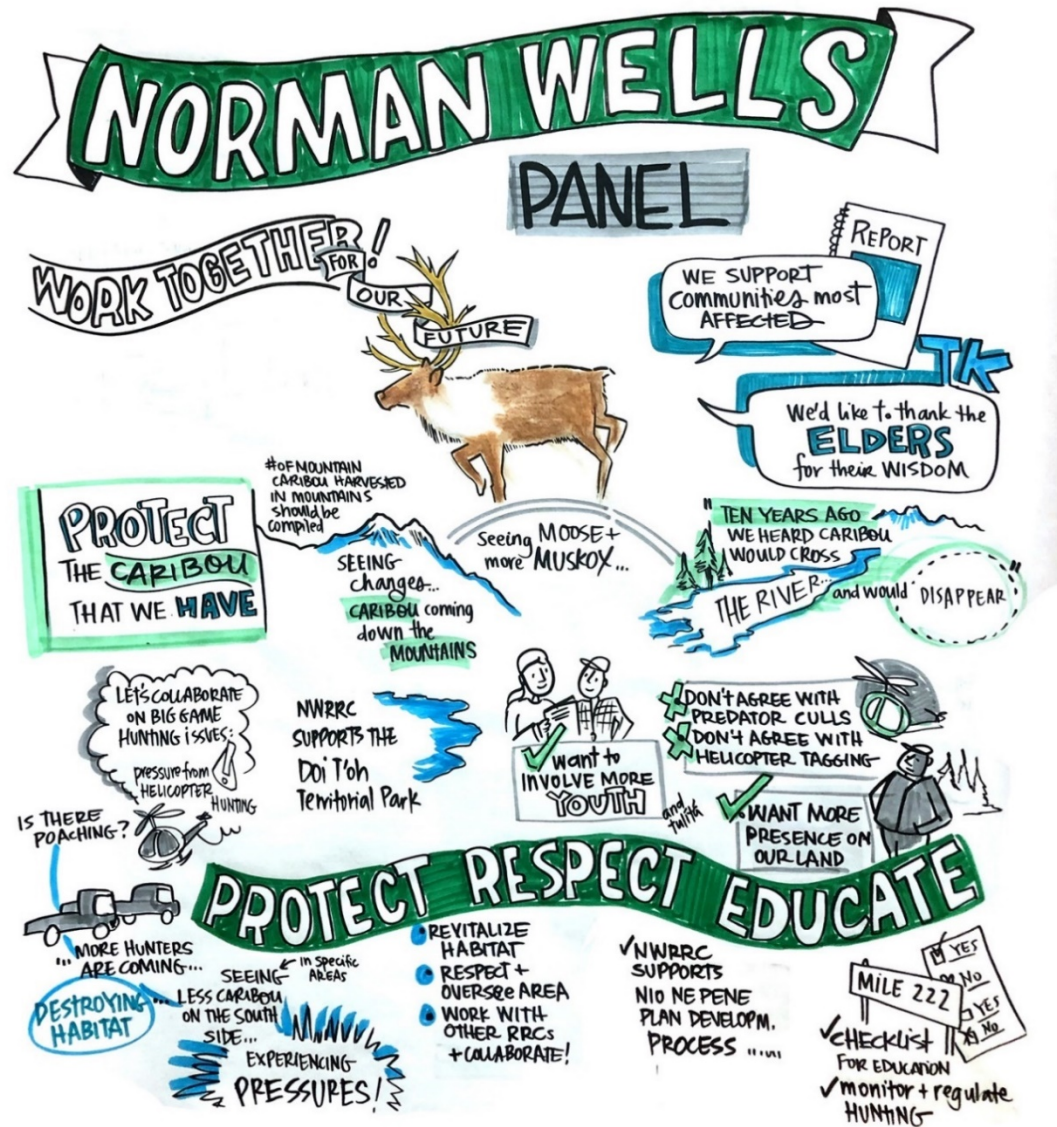 NORMAN WELLS
PANEL
WORK TOGETHER!
FOR
OUR
FUTURE
REPORT
WE SUPPORT
communities most
AFFECTED
TK
We'd like to thank the
ELDERS
for their WISDOM
PROTECT
THE CARIBOU
THAT WE HAVE
# OF MOUNTAIN
CARIBOU HARVESTED
IN MOUNTAINS
should be
compiled
SEEING
changes...
CARIBOU coming
down the
MOUNTAINS
Seeing MOOSE +
more MUSKOX...
"TEN YEARS AGO
WE HEARD CARIBOU
WOULD CROSS
THE RIVER... and would DISAPPEAR"
LET'S COLLABORATE
ON BIG GAME
HUNTING ISSUES:
pressure from
HELICOPTER
HUNTING
NWRRC
SUPPORTS THE
Doi T'oh
Territorial Park
want to
INVOLVE MORE
YOUTH
and
tulita
DON'T AGREE WITH
PREDATOR CULLS
DON'T AGREE WITH
HELICOPTER TAGGING
WANT MORE
PRESENCE ON
OUR LAND
IS THERE
POACHING?
PROTECT RESPECT EDUCATE
... MORE HUNTERS
ARE COMING...
DESTROYING
HABITAT
SEEING
in specific
AREAS
... LESS CARIBOU
ON THE SOUTH
SIDE...
EXPERIENCING
PRESSURES!
REVITALIZE
HABITAT
RESPECT +
OVERSEE AREA
WORK WITH
OTHER RRCs
+ COLLABORATE!
✓NWRRC
SUPPORTS
NIO NE PENE
PLAN DEVELOPM.
PROCESS .....
MILE 222
YES
NO
YES
No
✓CHECKLIST
FOR EDUCATION
✓monitor + regulate
HUNTING